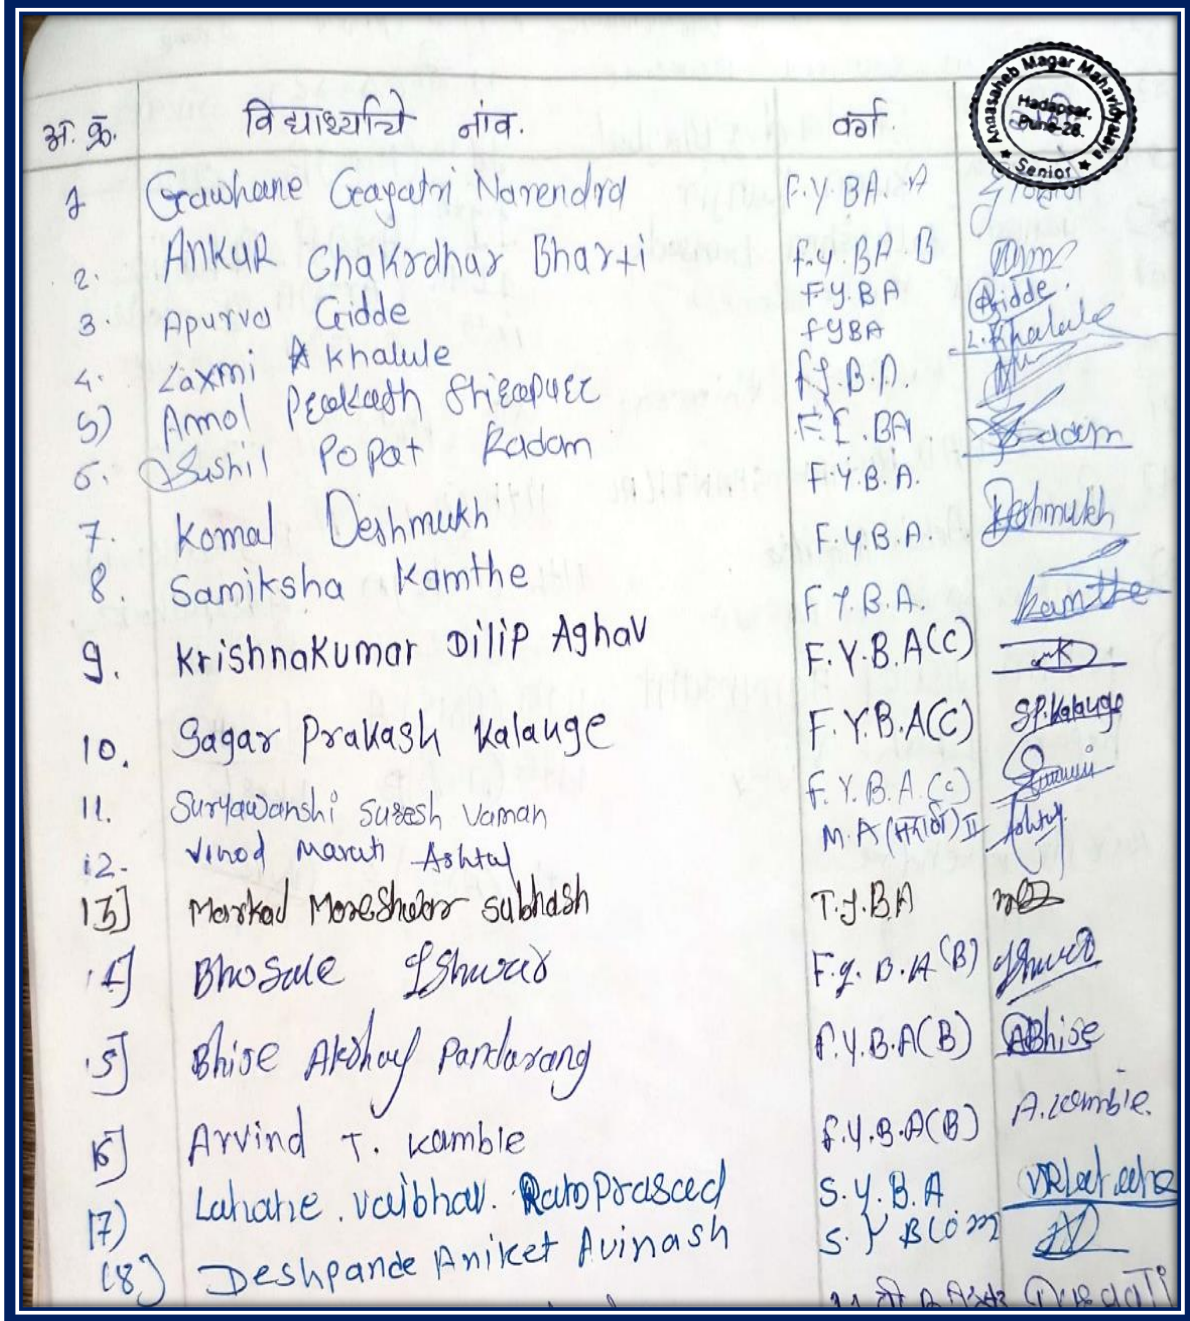 अ. क्र. विद्यार्थ्याचे नांव. वर्ग.
Annasaheb Magar Mahavidyalaya
Hadapsar,
Pune-28.
★ Senior ★
1 Gawhane Gayatri Narendra F.Y.BA. A
2. ANKUR Chakrdhar Bharti F.Y BA. B
3. Apurva Gidde F.Y.BA Gidde.
4. Laxmi A Khalule FYBA L.Khalule
5) Anmol Prakash F.Y.B.A.
6. Sushil Popat Kadam F.Y.BA Kadam
7. Komal Deshmukh F.Y.B.A. Deshmukh
8. Samiksha Kamthe F.Y.B.A. Kamthe
F.Y.B.A.
9. Krishnakumar Dilip Aghav F.Y.B.A(C)
10. Sagar Prakash Kalauge F.Y.B.A(C) SP.Kalauge
11. Suryawanshi Suresh Vaman F.Y.B.A.(C)
12. Vinod Maruti Ashtaf M.A (मराठी) II
13] Markad Moreshwar Subhash T.Y.BA
14] Bhosale Ishwar F.Y.B.A(B) Ishwar
15] Bhise Akshay Pandurang F.Y.B.A(B) ABhise
16] Arvind T. Kamble F.Y.B.A(B) A.Kamble.
17) Lahane. Vaibhav. Ramprasad S.Y.B.A
18) Deshpande Aniket Avinash S.Y BCom